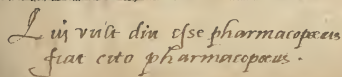 Qui vult diu esse pharmacopoeus
fiat cito pharmacopoeus.